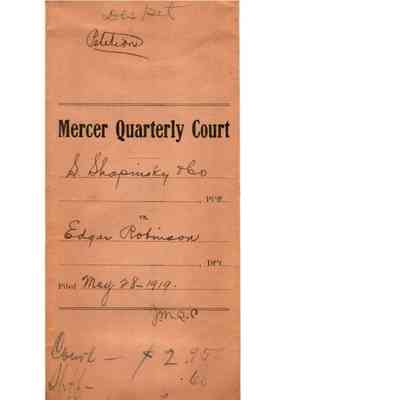 Petition
Mercer Quarterly Court
S. Shapinsky & Co
, Pl'ff.
vs.
Edgar Robinson
, Df't.
Filed May 28-1919.
Court - $2.95
.60